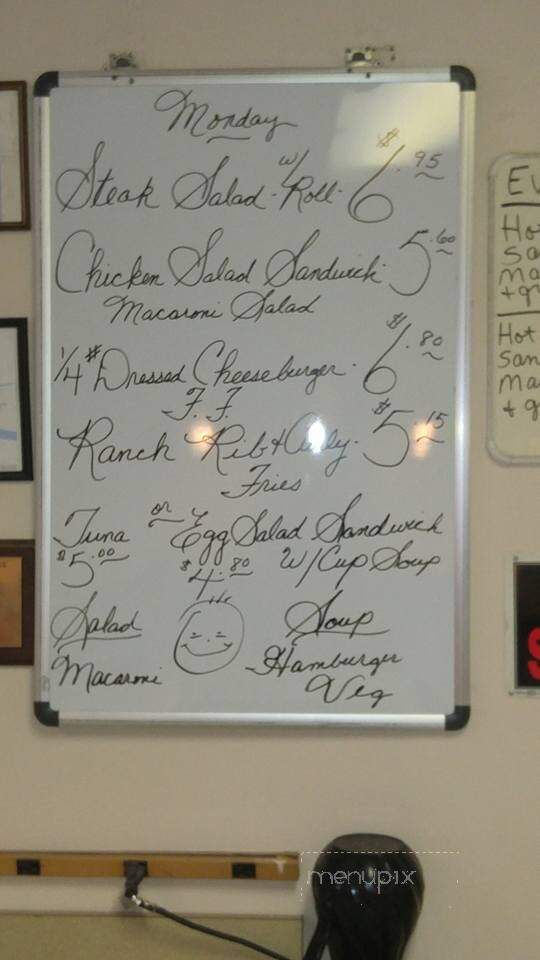 Monday
Steak Salad - w/ Roll - $6.95
Chicken Salad Sandwich 5.60
Macaroni Salad
1/4 # Dressed Cheeseburger - $6.80
F.F
Ranch Rib + Curly - $5.15
Fries
Tuna or Egg Salad Sandwich
$5.00 $4.80 W/Cup Soup
Salad
Macaroni
Soup
Hamburger
Veg
Ho
Sa
Ma
+ g
Hot
San
Ma
+ g
menupix